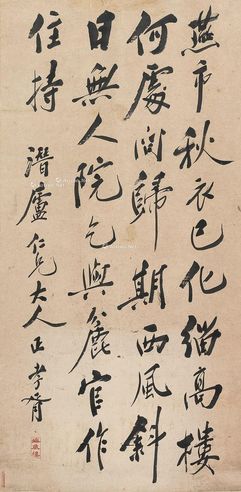 燕市秋衣已化緇高樓
何處問歸期西風斜
日無人院乞與麄官作
住持 潛廬仁兄大人正 孝胥